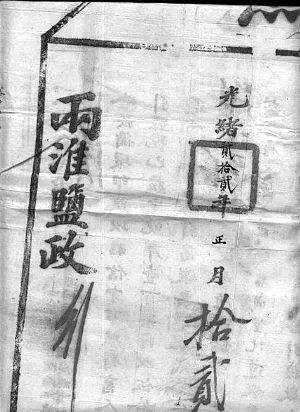 光緒貳拾貳年正月拾貳
兩淮鹽政